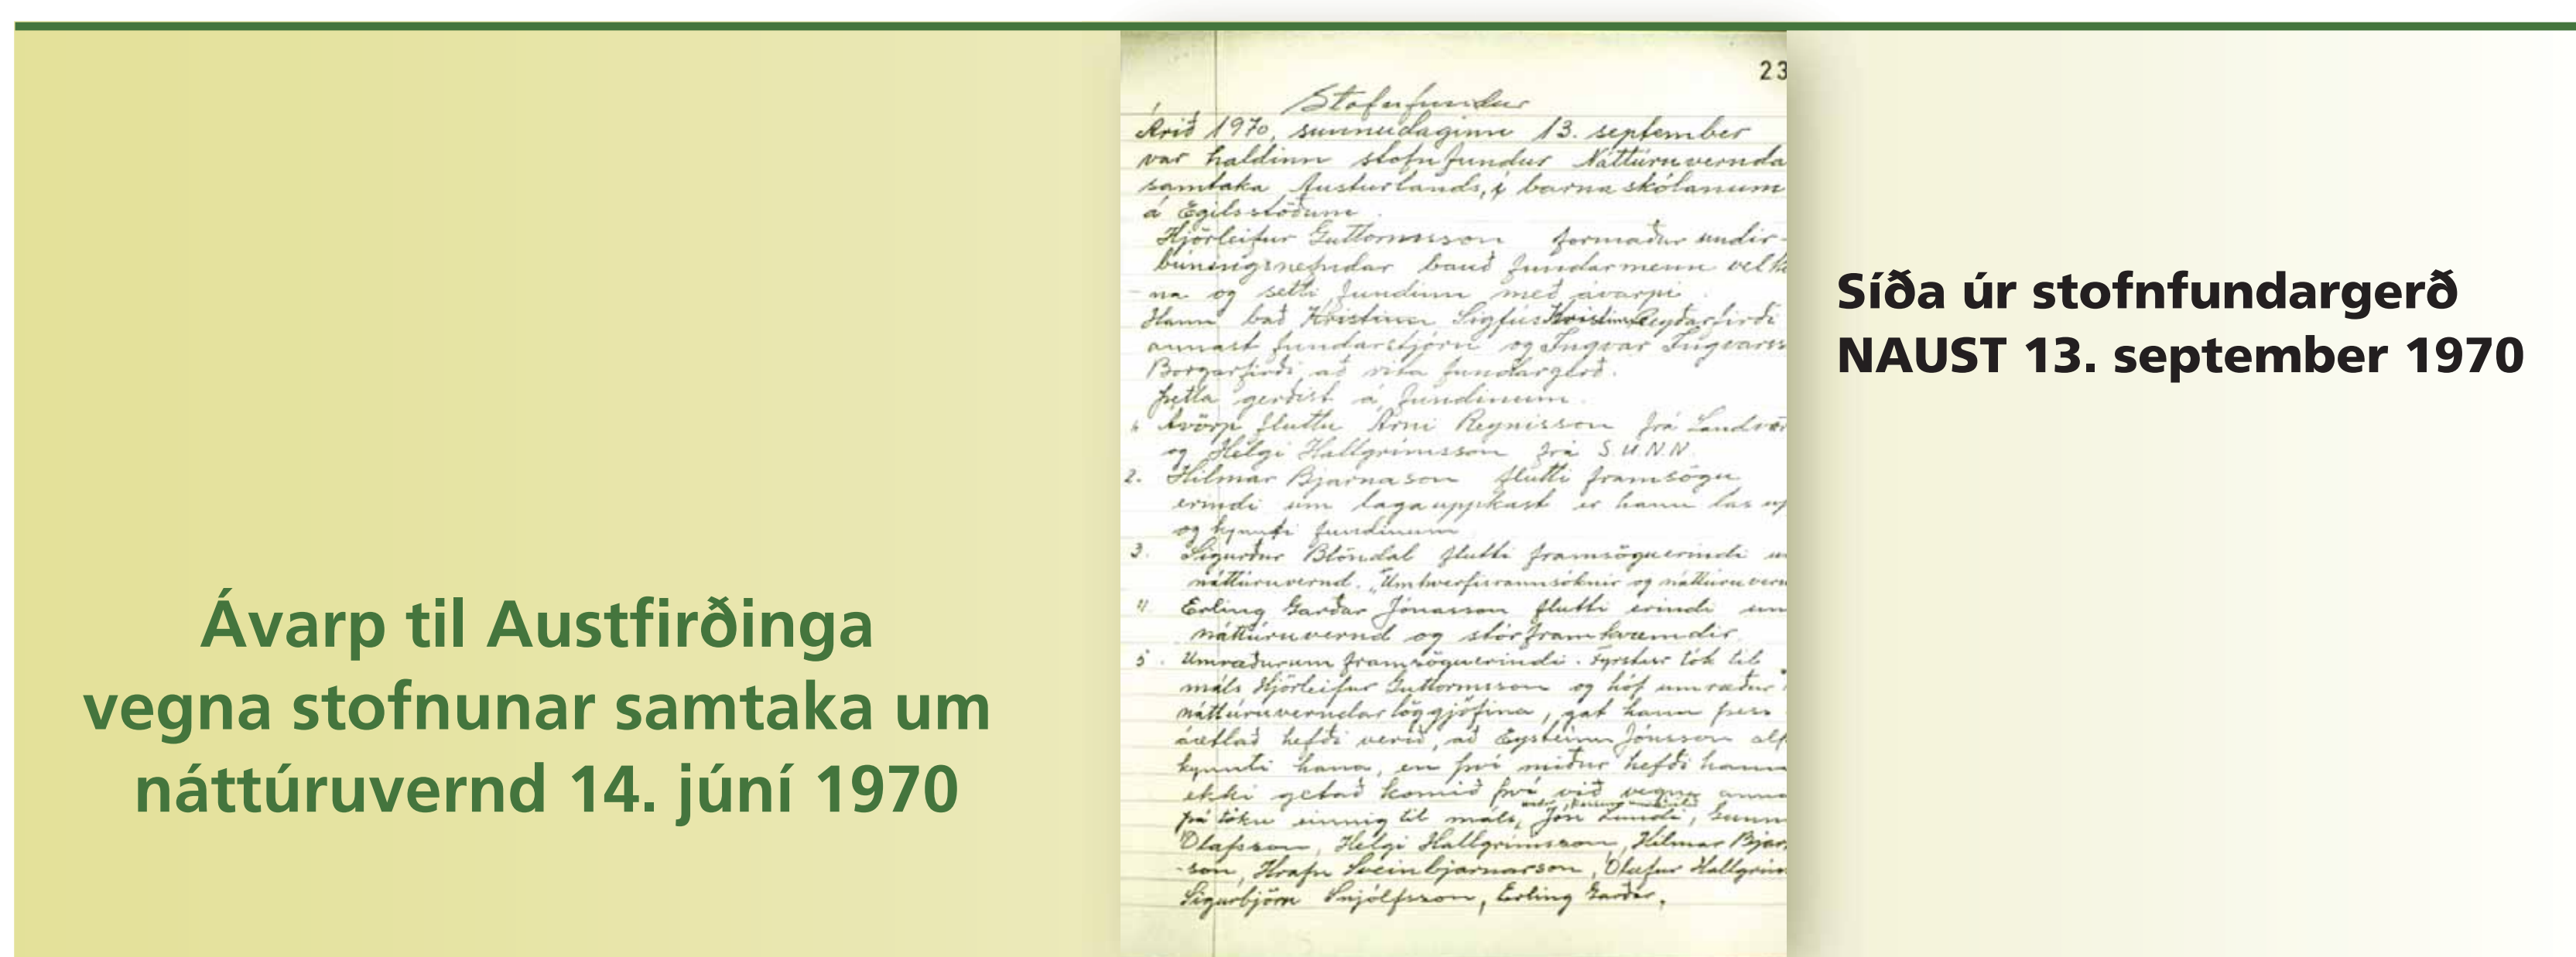 Ávarp til Austfirðinga
vegna stofnunar samtaka um
náttúruvernd 14. júní 1970
23
Stofnfundur
Árið 1970, sunnudaginn 13. september
var haldinn stofnfundur Náttúruvernda
samtaka Austurlands, í barnaskólanum
á Egilsstöðum.
Hjörleifur Guttormsson formaður undir-
búningsnefndar bauð fundarmenn velk
na og setti fundinn með ávarpi.
Hann bað Kristinn Sigfús Reyðarfirði
annast fundarstjórn og Ingvar Ingvarss
Borgarfirði að rita fundargerð.
Þetta gerðist á fundinum.
1. Ávörp fluttu Árni Reynisson frá Landver
og Helgi Hallgrímsson frá S.U.N.N.
2. Hilmar Bjarnason flutti framsögu
erindi um lagauppkast er hann las up
og kynnti fundinum
3. Sigurður Blöndal flutti framsöguerindi u
náttúruvernd. „Umhverfisrannsóknir og náttúruvern
4. Erling Garðar Jónasson flutti erindi um
náttúruvernd og stórframkvæmdir.
5. Umræður um framsöguerindi. Fyrstur tók til
máls Hjörleifur Guttormsson og hóf umræður
náttúruverndarlöggjöfina, gat hann þess
áætlað hefði verið, að Eysteinn Jónsson alþ
kynnti hana, en því miður hefði hann
ekki getað komið því við vegna anna
þá tóku einnig til máls, Jón Lundi, Gunn
Ólafsson, Helgi Hallgrímsson, Hilmar Bjar
-son, Hrafn Sveinbjarnarson, Ólafur Hallgrím
Sigurbjörn Snjólfsson, Erling Garðar.
Síða úr stofnfundargerð
NAUST 13. september 1970